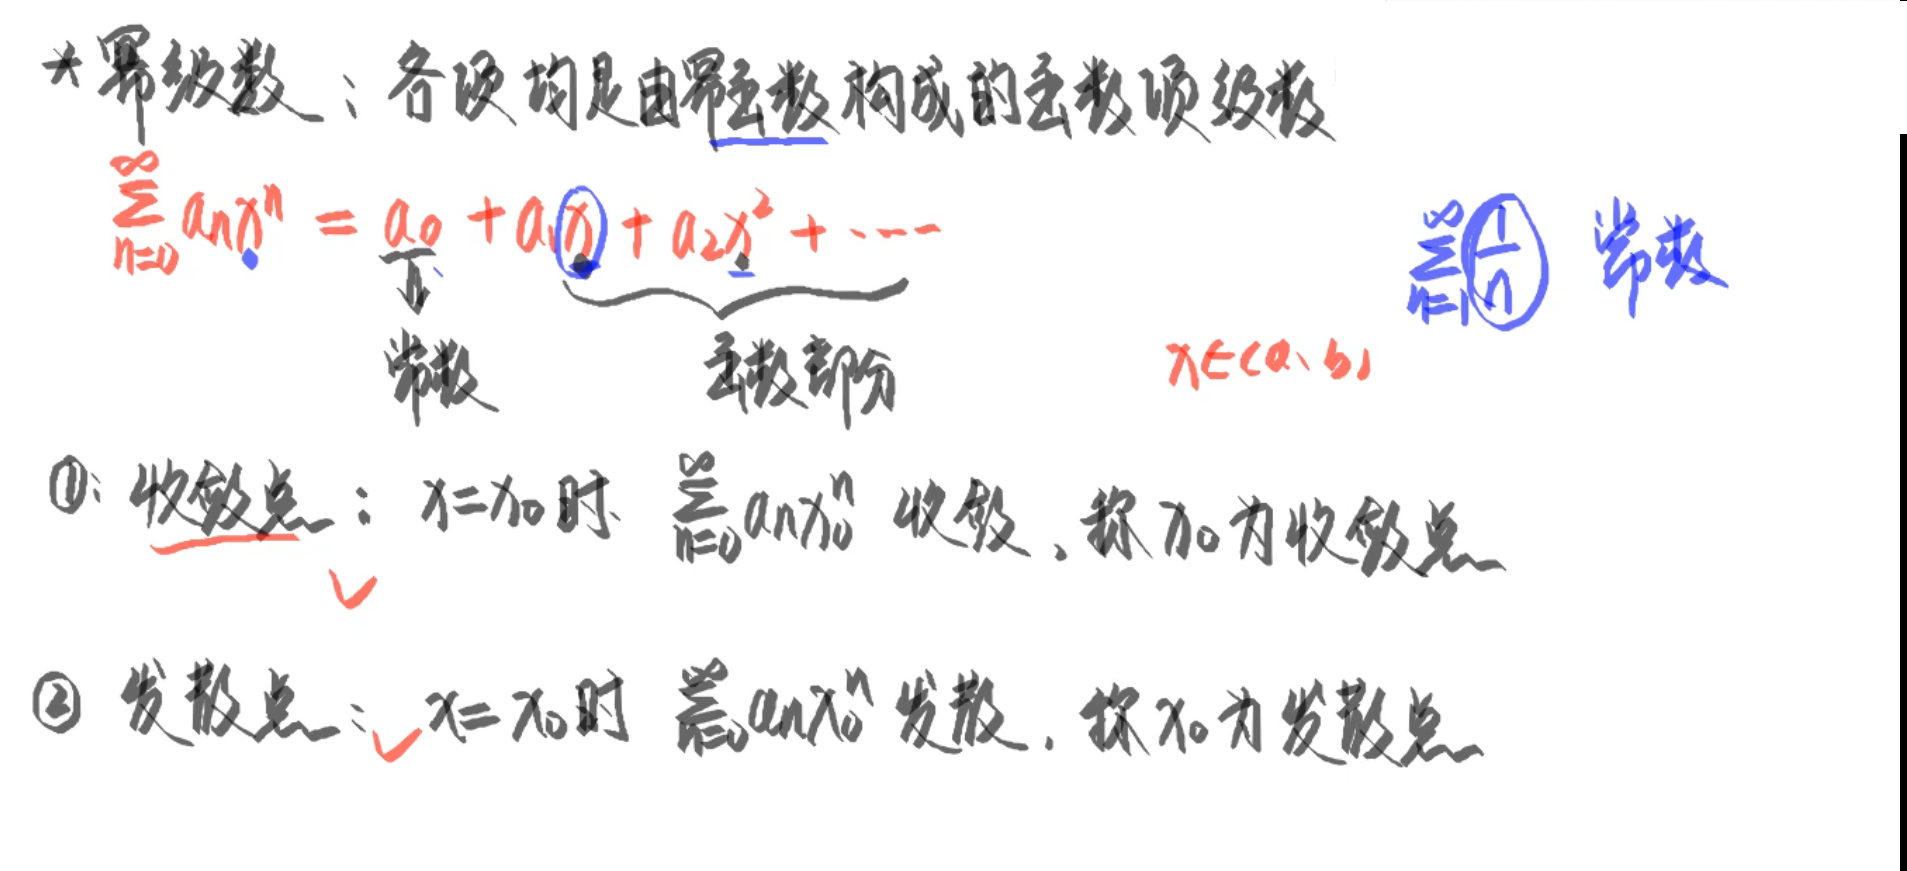 *幂级数：各项均是由幂函数构成的函数项级数
∑_{n=0}^{∞} aₙxⁿ = a₀ + a₁x + a₂x² + ····
∑_{n=1}^{∞} 1/n 常数
常数 函数部分 x∈(a、b)
①：收敛点：x=x₀时 ∑_{n=0}^{∞} aₙx₀ⁿ 收敛、称x₀为收敛点
② 发散点：x=x₀时 ∑_{n=0}^{∞} aₙx₀ⁿ 发散、称x₀为发散点